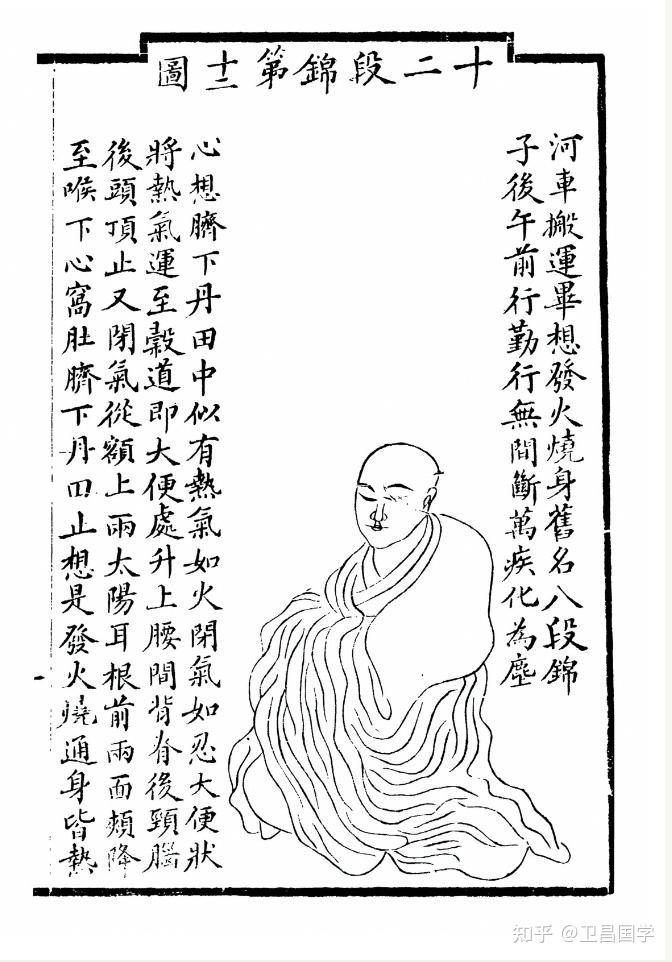 十二段錦第十二圖
河車搬運畢想發火燒身舊名八段錦
子後午前行勤行無間斷萬疾化為塵
心想臍下丹田中似有熱氣如火閉氣如忍大便狀
將熱氣運至穀道即大便處升上腰間背脊後頸腦
後頭頂止又閉氣從額上兩太陽耳根前兩面頰降
至喉下心窩肚臍下丹田止想是發火燒通身皆熱
知乎 @卫昌国学